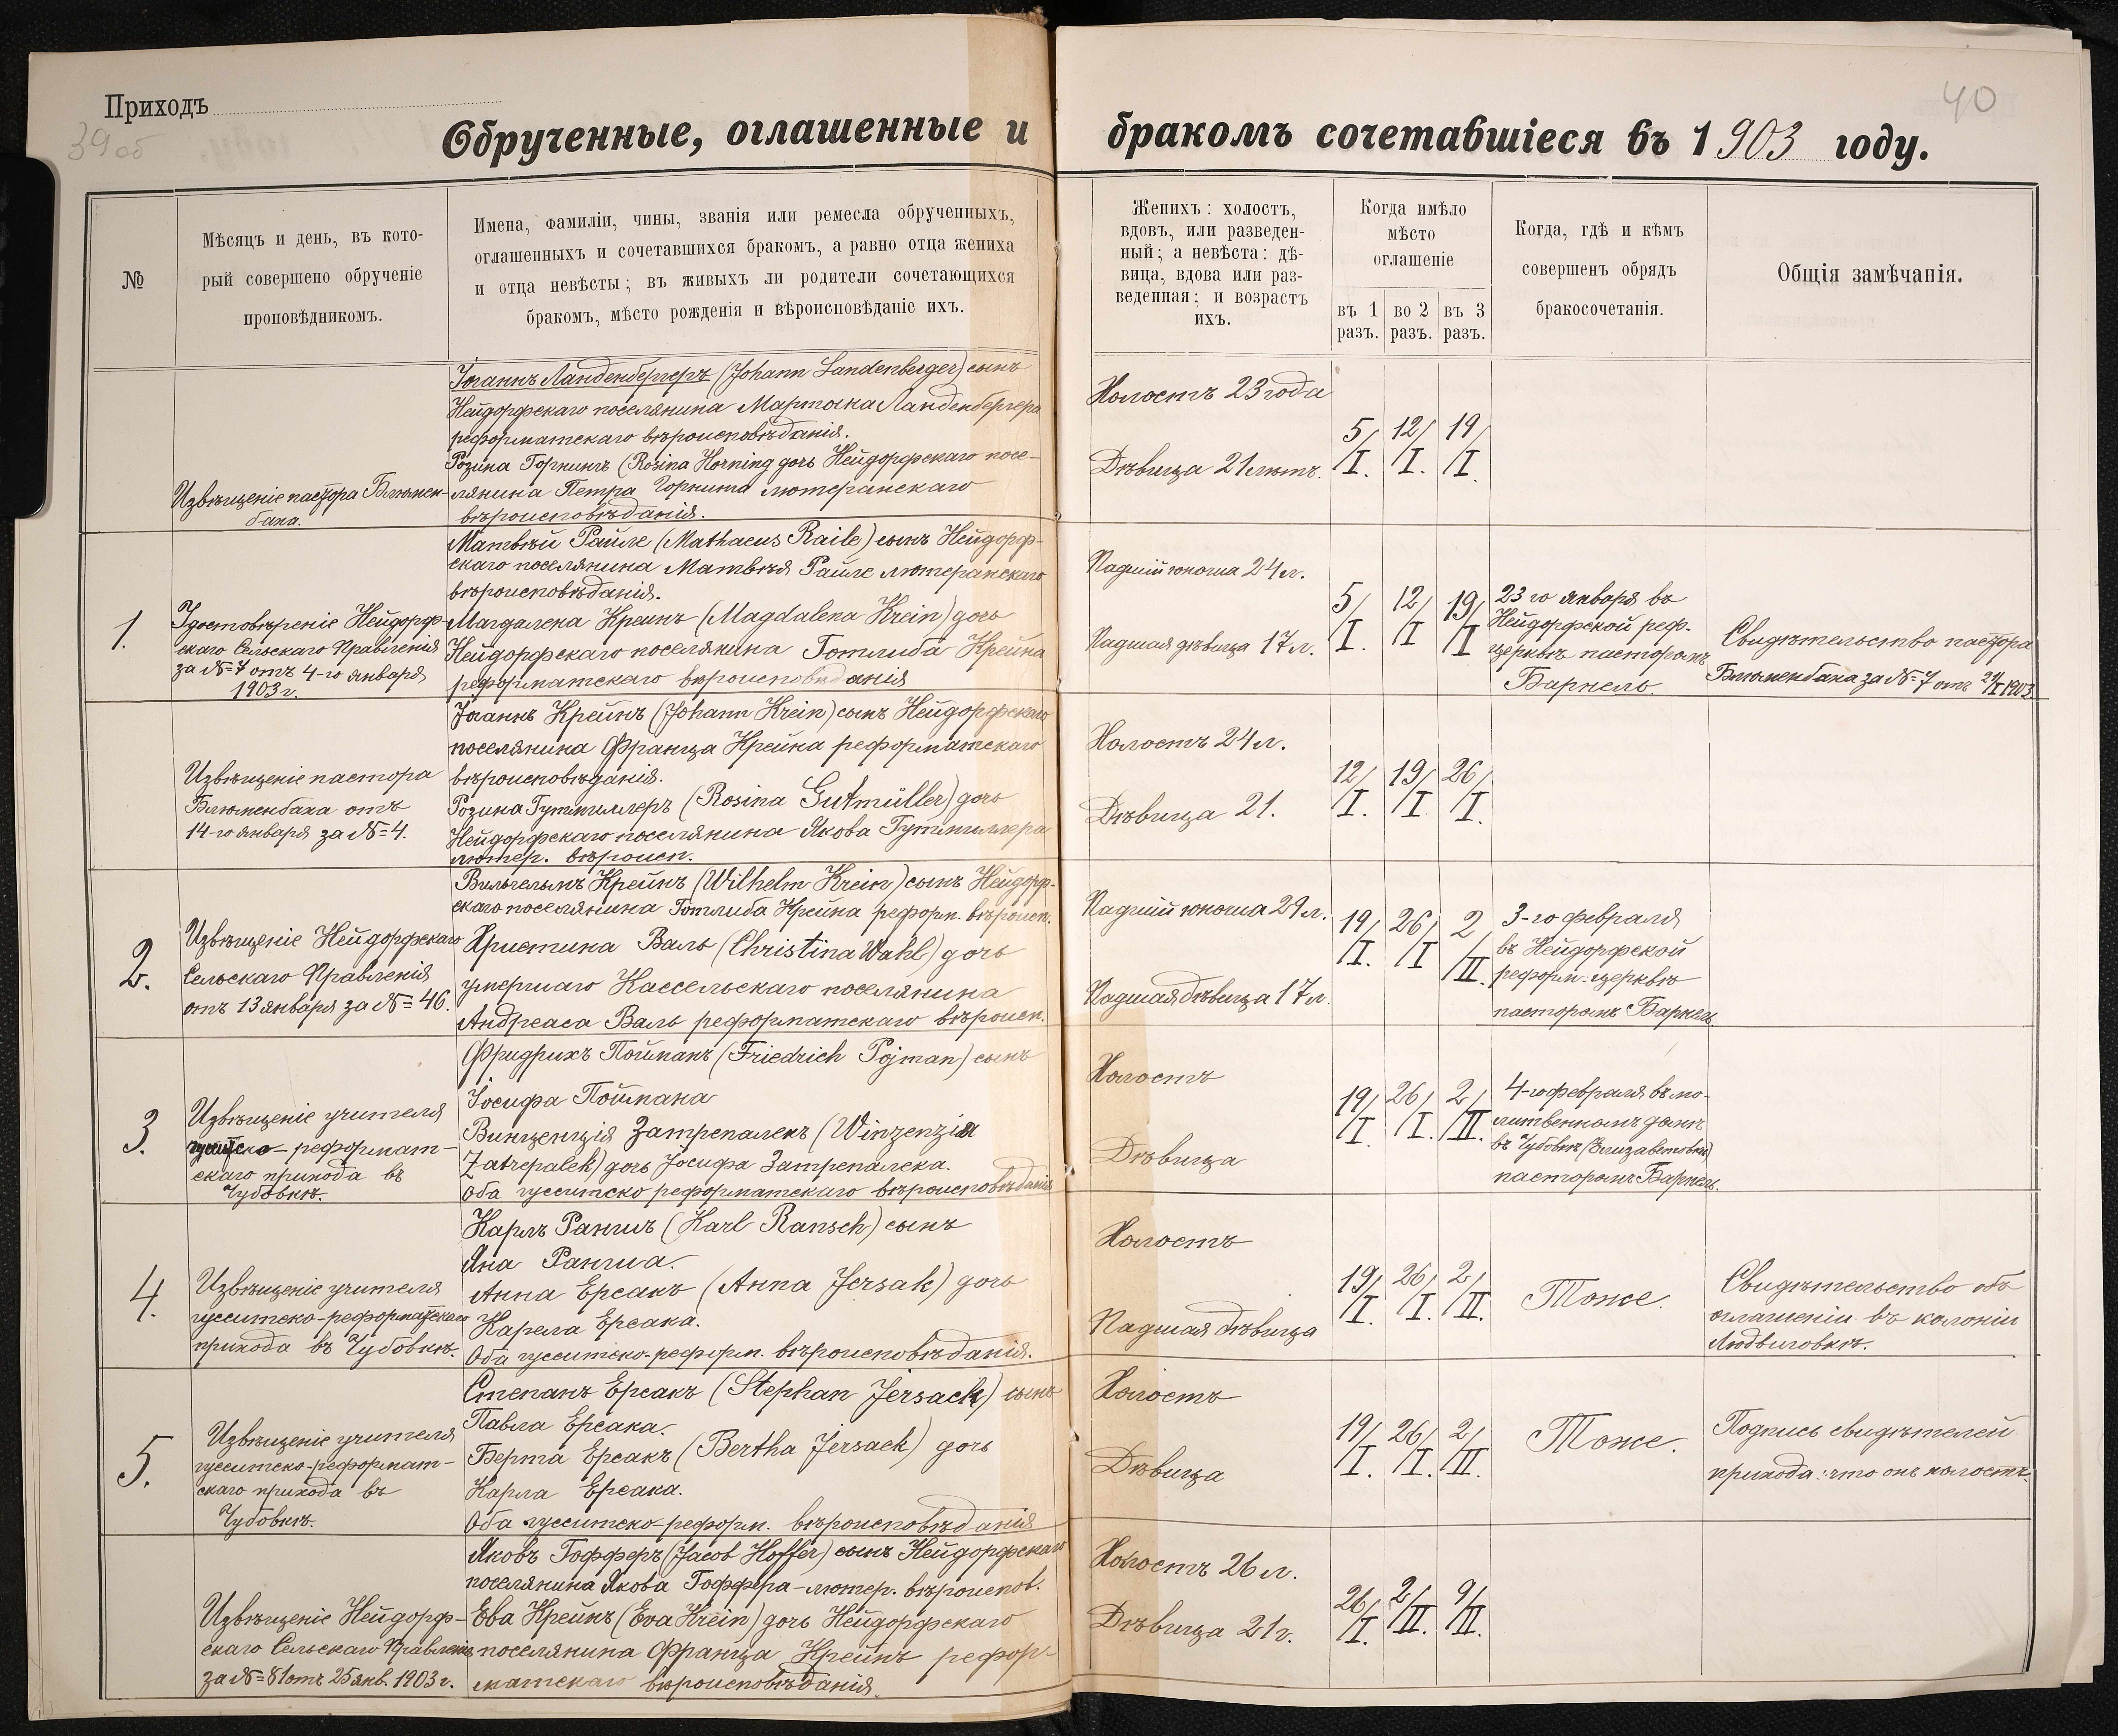 Приходъ
39об
40
Обрученные, оглашенные и бракомъ сочетавшіеся въ 1903 году.
№
Мѣсяцъ и день, въ кото-
рый совершено обрученіе
проповѣдникомъ.
Имена, фамиліи, чины, званія или ремесла обрученныхъ,
оглашенныхъ и сочетавшихся бракомъ, а равно отца жениха
и отца невѣсты; въ живыхъ ли родители сочетающихся
бракомъ, мѣсто рожденія и вѣроисповѣданіе ихъ.
Женихъ: холостъ,
вдовъ, или разведен-
ный; а невѣста: дѣ-
вица, вдова или раз-
веденная; и возрастъ
ихъ.
Когда имѣло
мѣсто
оглашеніе
въ 1 разъ.
во 2 разъ.
въ 3 разъ.
Когда, гдѣ и кѣмъ
совершенъ обрядъ
бракосочетанія.
Общія замѣчанія.
Извѣщеніе пастора Блюмен-
баха.
Іоаннъ Ланденбергеръ (Johann Landenberger) сынъ
Нейдорфскаго поселянина Мартына Ланденбергера
реформатскаго вѣроисповѣданія.
Розина Горнингъ (Rosina Horning дочь Нейдорфскаго посе-
лянина Петра Горнинга лютеранскаго
вѣроисповѣданія.
Холостъ 23 года
Дѣвица 21 лѣтъ.
5/I. 12/I. 19/I.
1.
Удостовѣреніе Нейдорф-
скаго Сельскаго Правленія
за №7 отъ 4-го января
1903 г.
Матвѣй Райле (Mathaeus Raile) сынъ Нейдорф-
скаго поселянина Матвѣя Райле лютеранскаго
вѣроисповѣданія.
Магдалена Креинъ (Magdalena Krein) дочь
Нейдорфскаго поселянина Готлиба Крейна
реформатскаго вѣроисповѣданія
Падшій юноша 24 л.
Падшая дѣвица 17 л.
5/I. 12/I 19/I
23 го января въ
Нейдорфской реф.
церквѣ пасторомъ
Барнель.
Свидѣтельство пастора
Блюменбаха за №7 отъ 24/I 1903.
Извѣщеніе пастора
Блюменбаха отъ
14-го января за №4.
Іоаннъ Крейнъ (Johann Krein) сынъ Нейдорфскаго
поселянина Франца Крейна реформатскаго
вѣроисповѣданія.
Розина Гутмиллеръ (Rosina Gutmüller) дочь
Нейдорфскаго поселянина Якова Гутмиллера
лютер. вѣроисп.
Холостъ 24 л.
Дѣвица 21.
12/I. 19/I. 26/I.
2.
Извѣщеніе Нейдорфскаго
Сельскаго Правленія
отъ 13 января за №46.
Вильгельмъ Крейнъ (Wilhelm Krein) сынъ Нейдорф-
скаго поселянина Готлиба Крейна реформ. вѣроисп.
Христина Валь (Christina Wahl) дочь
умершаго Кассельскаго поселянина
Андреаса Валь реформатскаго вѣроисп.
Падшій юноша 29 л.
Падшая дѣвица 17 л.
19/I. 26/I 2/II.
3-го февраля
въ Нейдорфской
реформ. церквѣ
пасторомъ Барнель
3.
Извѣщеніе учителя
гуситско-реформат-
скаго прихода въ
Чубовкѣ.
Фридрихъ Пойманъ (Friedrich Pojman) сынъ
Іосифа Поймана
Винценція Затрепалекъ (Winzenzia
Zatrepalek) дочь Іосифа Затрепалека.
Оба гусситско реформатскаго вѣроисповѣданія
Холостъ
Дѣвица
19/I. 26/I. 2/II.
4-го февраля въ мо-
литвенномъ домѣ
въ Чубовкѣ (Елизаветовкѣ)
пасторомъ Барнель.
4.
Извѣщеніе учителя
гусситско-реформатскаго
прихода въ Чубовкѣ.
Карлъ Раншъ (Karl Ransch) сынъ
Яна Ранша.
Анна Ерсакъ (Anna Jersak) дочь
Карела Ерсака.
Оба гусситско-реформ. вѣроисповѣданія.
Холостъ
Падшая дѣвица
19/I. 26/I. 2/II.
Тоже.
Свидѣтельство объ
оглашеніи въ колоніи
Людвиговкѣ.
5.
Извѣщеніе учителя
гусситско-реформат-
скаго прихода въ
Чубовкѣ.
Степанъ Ерсакъ (Stephan Jersack) сынъ
Павла Ерсака.
Берта Ерсакъ (Bertha Jersack) дочь
Карла Ерсака.
Оба гусситско-реформ. вѣроисповѣданія
Холостъ
Дѣвица
19/I. 26/I. 2/II.
Тоже.
Подпись свидѣтелей
прихода: что онъ холостъ.
Извѣщеніе Нейдорф-
скаго Сельскаго Правленія
за №81 отъ 25 янв. 1903 г.
Яковъ Гофферъ (Jacob Hoffer) сынъ Нейдорфскаго
поселянина Якова Гоффера-лютер. вѣроиспов.
Ева Крейнъ (Eva Krein) дочь Нейдорфскаго
поселянина Франца Крейнъ рефор-
матскаго вѣроисповѣданія.
Холостъ 26 л.
Дѣвица 21 г.
26/I. 2/II. 9/II.